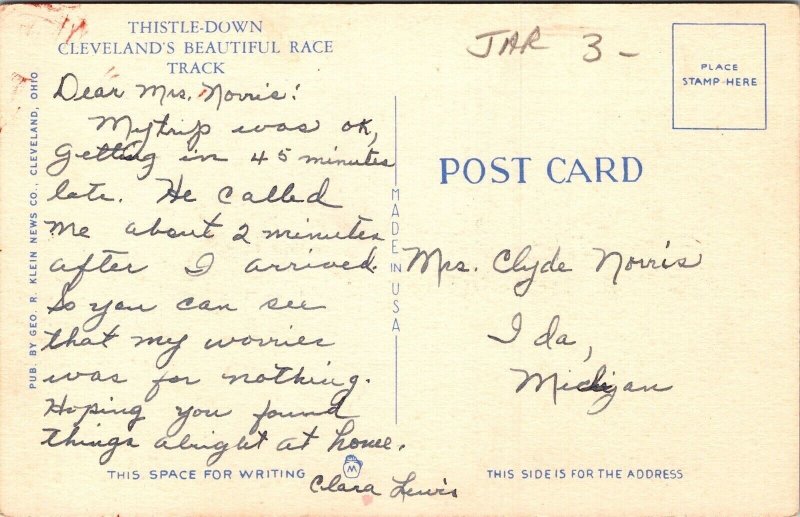 THISTLE-DOWN
CLEVELAND'S BEAUTIFUL RACE
TRACK
JAR 3-
PLACE
STAMP HERE
PUB. BY GEO. R. KLEIN NEWS CO., CLEVELAND, OHIO
Dear Mrs. Norris:
My trip was ok,
getting in 45 minutes
late. He called
me about 2 minutes
after I arrived.
So you can see
that my worries
was for nothing.
Hoping you found
things alright at home.
Clara Lewis
MADE IN USA
POST CARD
Mrs. Clyde Norris
Ida,
Michigan
THIS SPACE FOR WRITING
M
THIS SIDE IS FOR THE ADDRESS